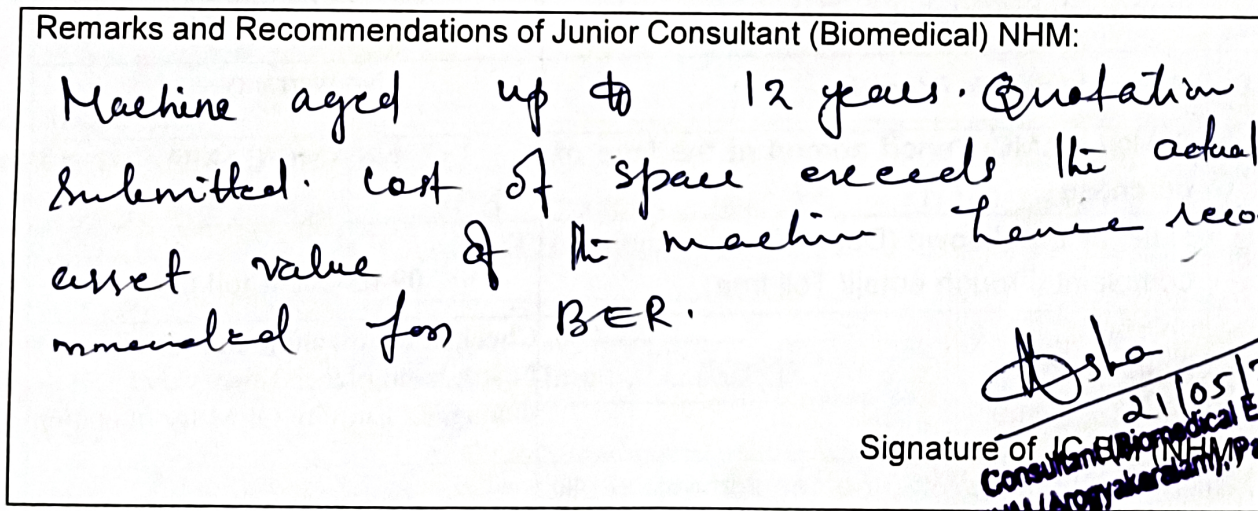 Remarks and Recommendations of Junior Consultant (Biomedical) NHM:
Machine aged up to 12 years. Quotation
submitted. cost of spare exceeds the actual
asset value of the machine hence reco
mmended for BER.
Asha
21/05/
Signature of JC BM (NHM)
Consultant (Biomedical E
(Arogyakeralam), Pa